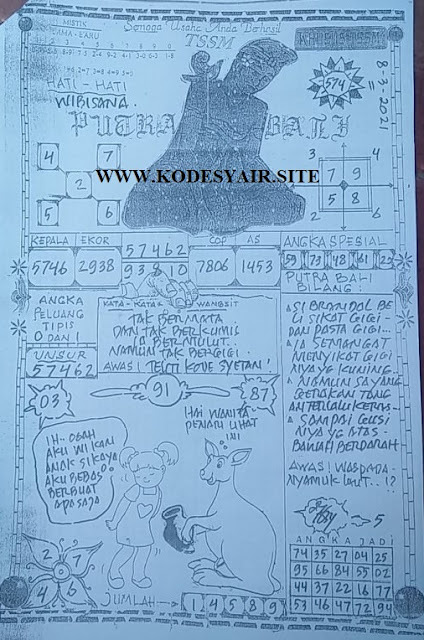 Semoga Usaha Anda Berhasil
MISTIK
TSSM
574
8-3-2021
HATI - HATI
WIBISANA
PUTRA BALI
WWW.KODESYAIR.SITE
4 7
2
5 6
3 4
7 9
5 8
2 6
KEPALA EKOR
5746 2938
57462
93810
COP AS
7806 1453
ANGKA SPESIAL
59 73 48 61 22
PUTRA BALI
BILANG:
ANGKA
PELUANG
TIPIS
0 DAN 1
UNSUR
57462
KATA - KATA WANGSIT
TAK BERMATA
DAN TAK BERKUMIS
IA BERMULUT
NAMUN TAK BERGIGI
AWAS! TELITI KODE SYETAN!
SI BRANDAL BE
LI SIKAT GIGI
DAN PASTA GIGI...
IA SEMANGAT
MENYIKAT GIGI
NYA YG KUNING
NAMUN SAYANG
GERAKAN TANG
AN TERLALU KERAS
SAMPAI GUSI
NYA YG ATAS
BAWAH BERDARAH
AWAS! WASPADA
NYAMUK LAUT..!?
03
91
87
HAI WANITA
PENARI LIHAT
INI
IH.. OGAH
AKU WI KAN
ANAK SIKAYA
AKU BEBAS
BERBUAT
APA SAJA
2 7
4 6
JUMLAH
1 4 5 8 9
5
ANGKA JADI
74 35 27 04 25
95 66 84 55 02
44 37 22 16 77
53 46 47 72 94